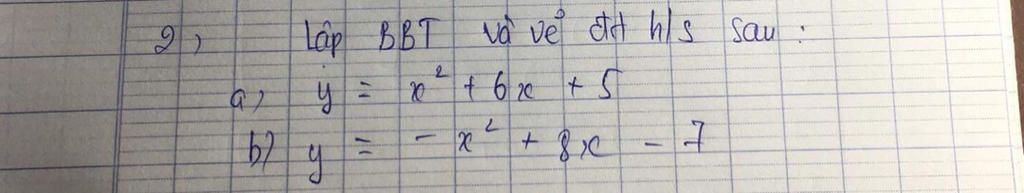 2, Lập BBT và vẽ đtH h/s sau :
a, y = x² + 6x + 5
b) y = - x² + 8x - 7